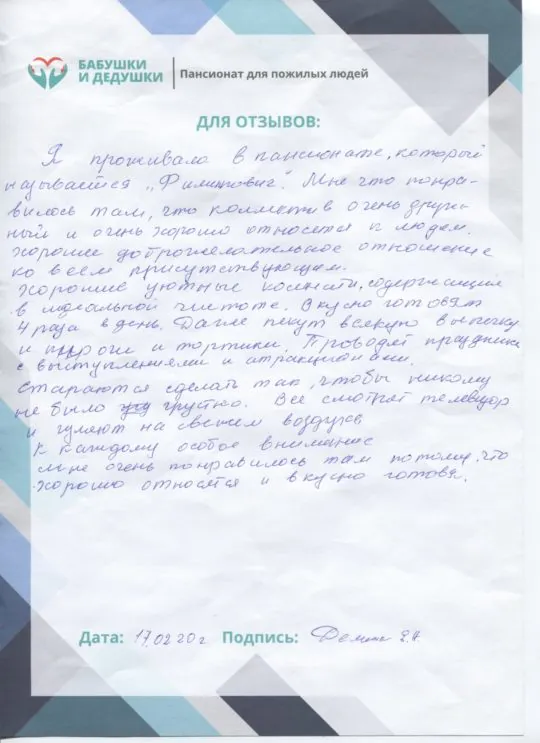 БАБУШКИ
И ДЕДУШКИ
Пансионат для пожилых людей
ДЛЯ ОТЗЫВОВ:
Я проживала в пансионате, который
называется „Филиппович". Мне что понра-
вилось там, что коллектив очень друж-
ный и очень хорошо относятся к людям.
Хорошее доброжелательное отношение
ко всем присутствующим.
Хорошие уютные комнаты, содержащие
в идеальной чистоте. Вкусно готовят
4 раза в день. Даже пекут всякую выпечку
и пироги и тортики. Проводят праздники
с выступлениями и
Стараются сделать так, чтобы никому
не было грустно. Все смотрят телевизор
и гуляют на свежем воздухе
К каждому особое внимание
Мне очень понравилось там потому, что
хорошо относятся и вкусно готовят.
Дата: 17.02.20 г Подпись: